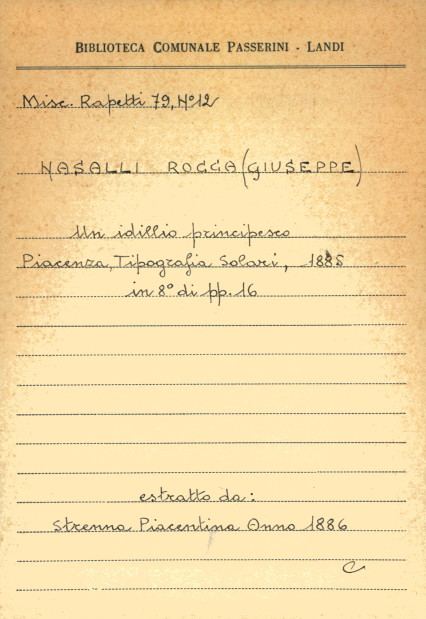 BIBLIOTECA COMUNALE PASSERINI - LANDI
Misc. Rapetti 79, N° 12
NASALLI ROCCA (GIUSEPPE)
Un idillio principesco
Piacenza, Tipografia Solari, 1885
in 8° di pp. 16
estratto da:
Strenna Piacentina Anno 1886
C